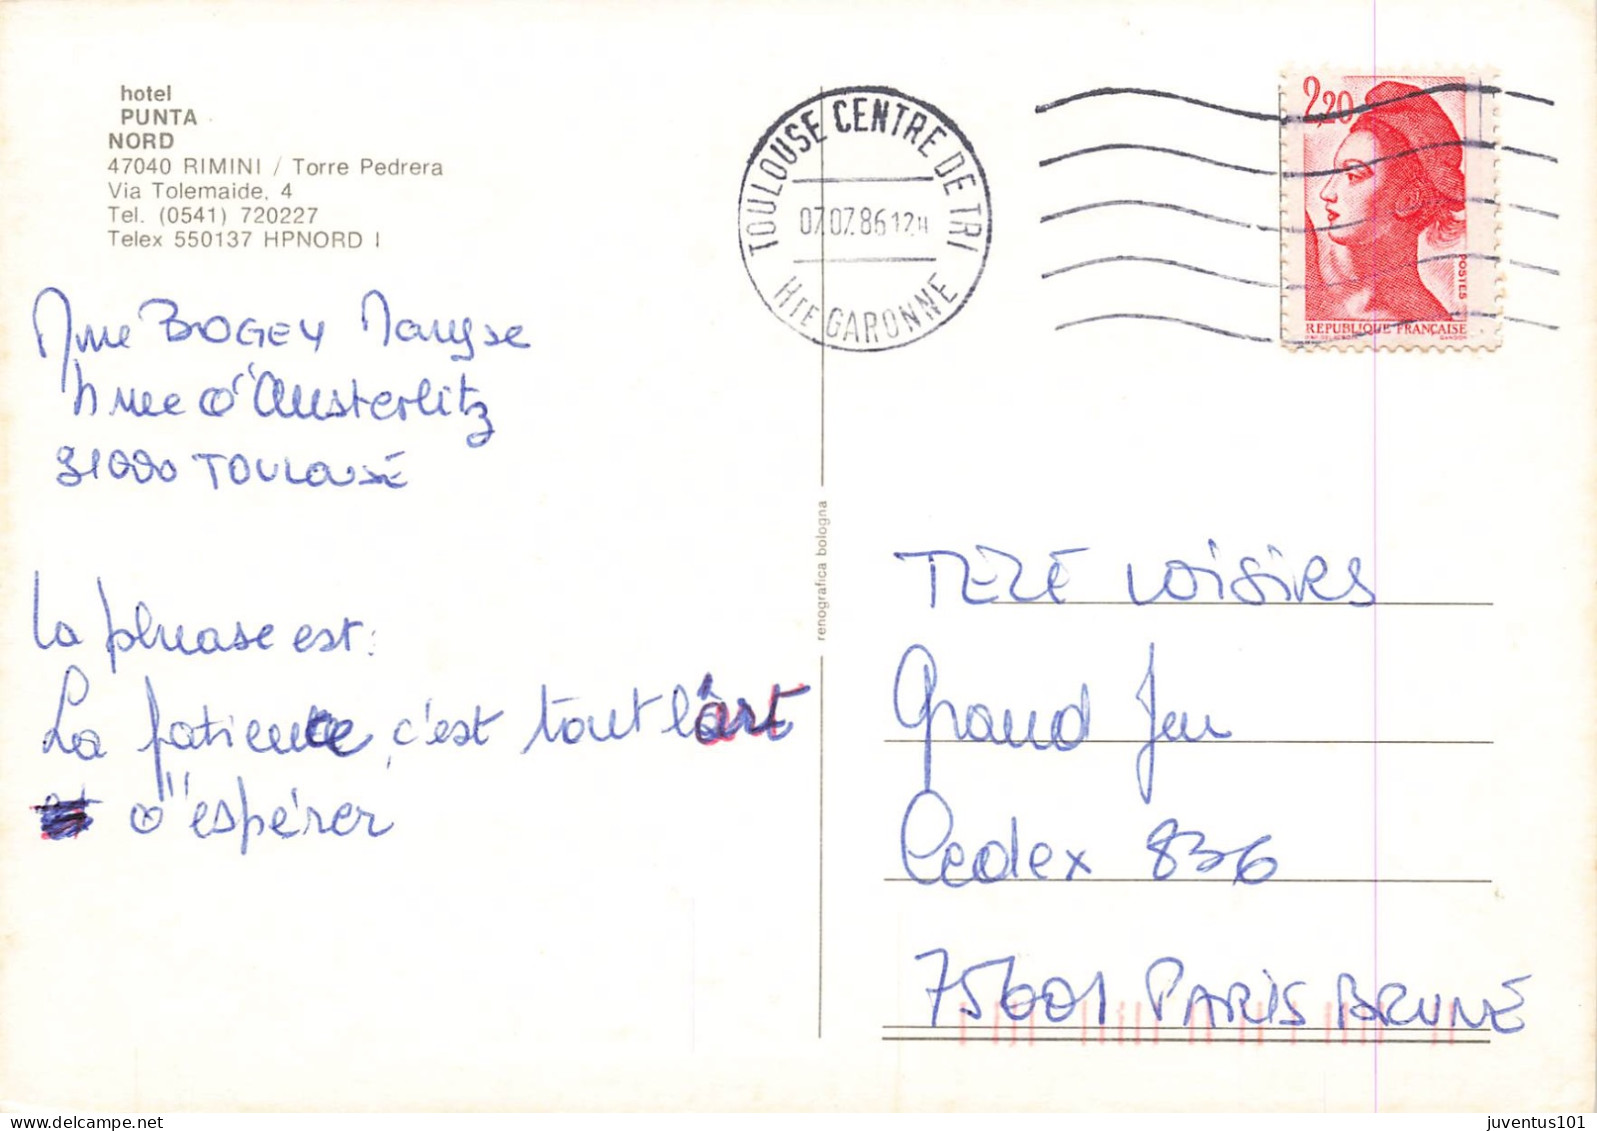 hotel
PUNTA
NORD
47040 RIMINI / Torre Pedrera
Via Tolemaide, 4
Tel. (0541) 720227
Telex 550137 HPNORD I
Mme BOGEY Maryse
rue d'Austerlitz
31000 TOULOUSE
La phrase est:
La patience, c'est tout l'art
d'espérer
renografica bologna
TOULOUSE CENTRE DE TRI
07.07.86 12H
HTE GARONNE
2,20
POSTES
REPUBLIQUE FRANÇAISE
GANDON
TÉLÉ LOISIRS
Grand Jeu
Cedex 836
75601 PARIS BRUNE
juventus101